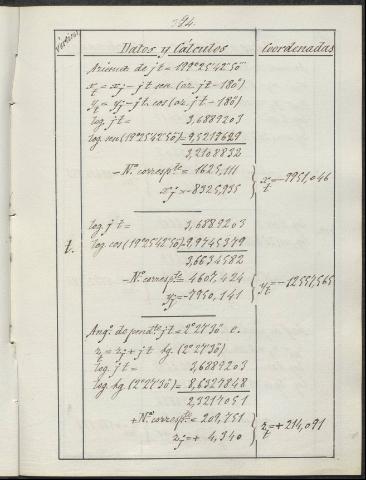 394.
Vértices
Datos y Cálculos
Coordenadas
Azimut de jt = 199°25'42"50
x_t = x_j - jt sen (az. jt - 180°)
y_t = y_j - jt. cos (az. jt - 180°)
log. jt = 3,6889203
log. sen (19°25'42"50) = 9,5219629
3,2108832
- N.º corresp.te = 1625,111
x_j = -8325,935
x_t = -9951,046
t.
log. jt = 3,6889203
log. cos (19°25'42"50) = 9,9745379
3,6634582
- N.º corresp.te = 4607,424
y_j = -7950,141
y_t = -12557,565
Ang.º de pend.te jt = 2°27'30" e.
z_t = z_j + jt tg. (2°27'30")
log. jt = 3,6889203
log. tg (2°27'30") = 8,6327848
2,3217051
+ N.º corresp.te = 209,751
z_j = + 4,340
z_t = + 214,091